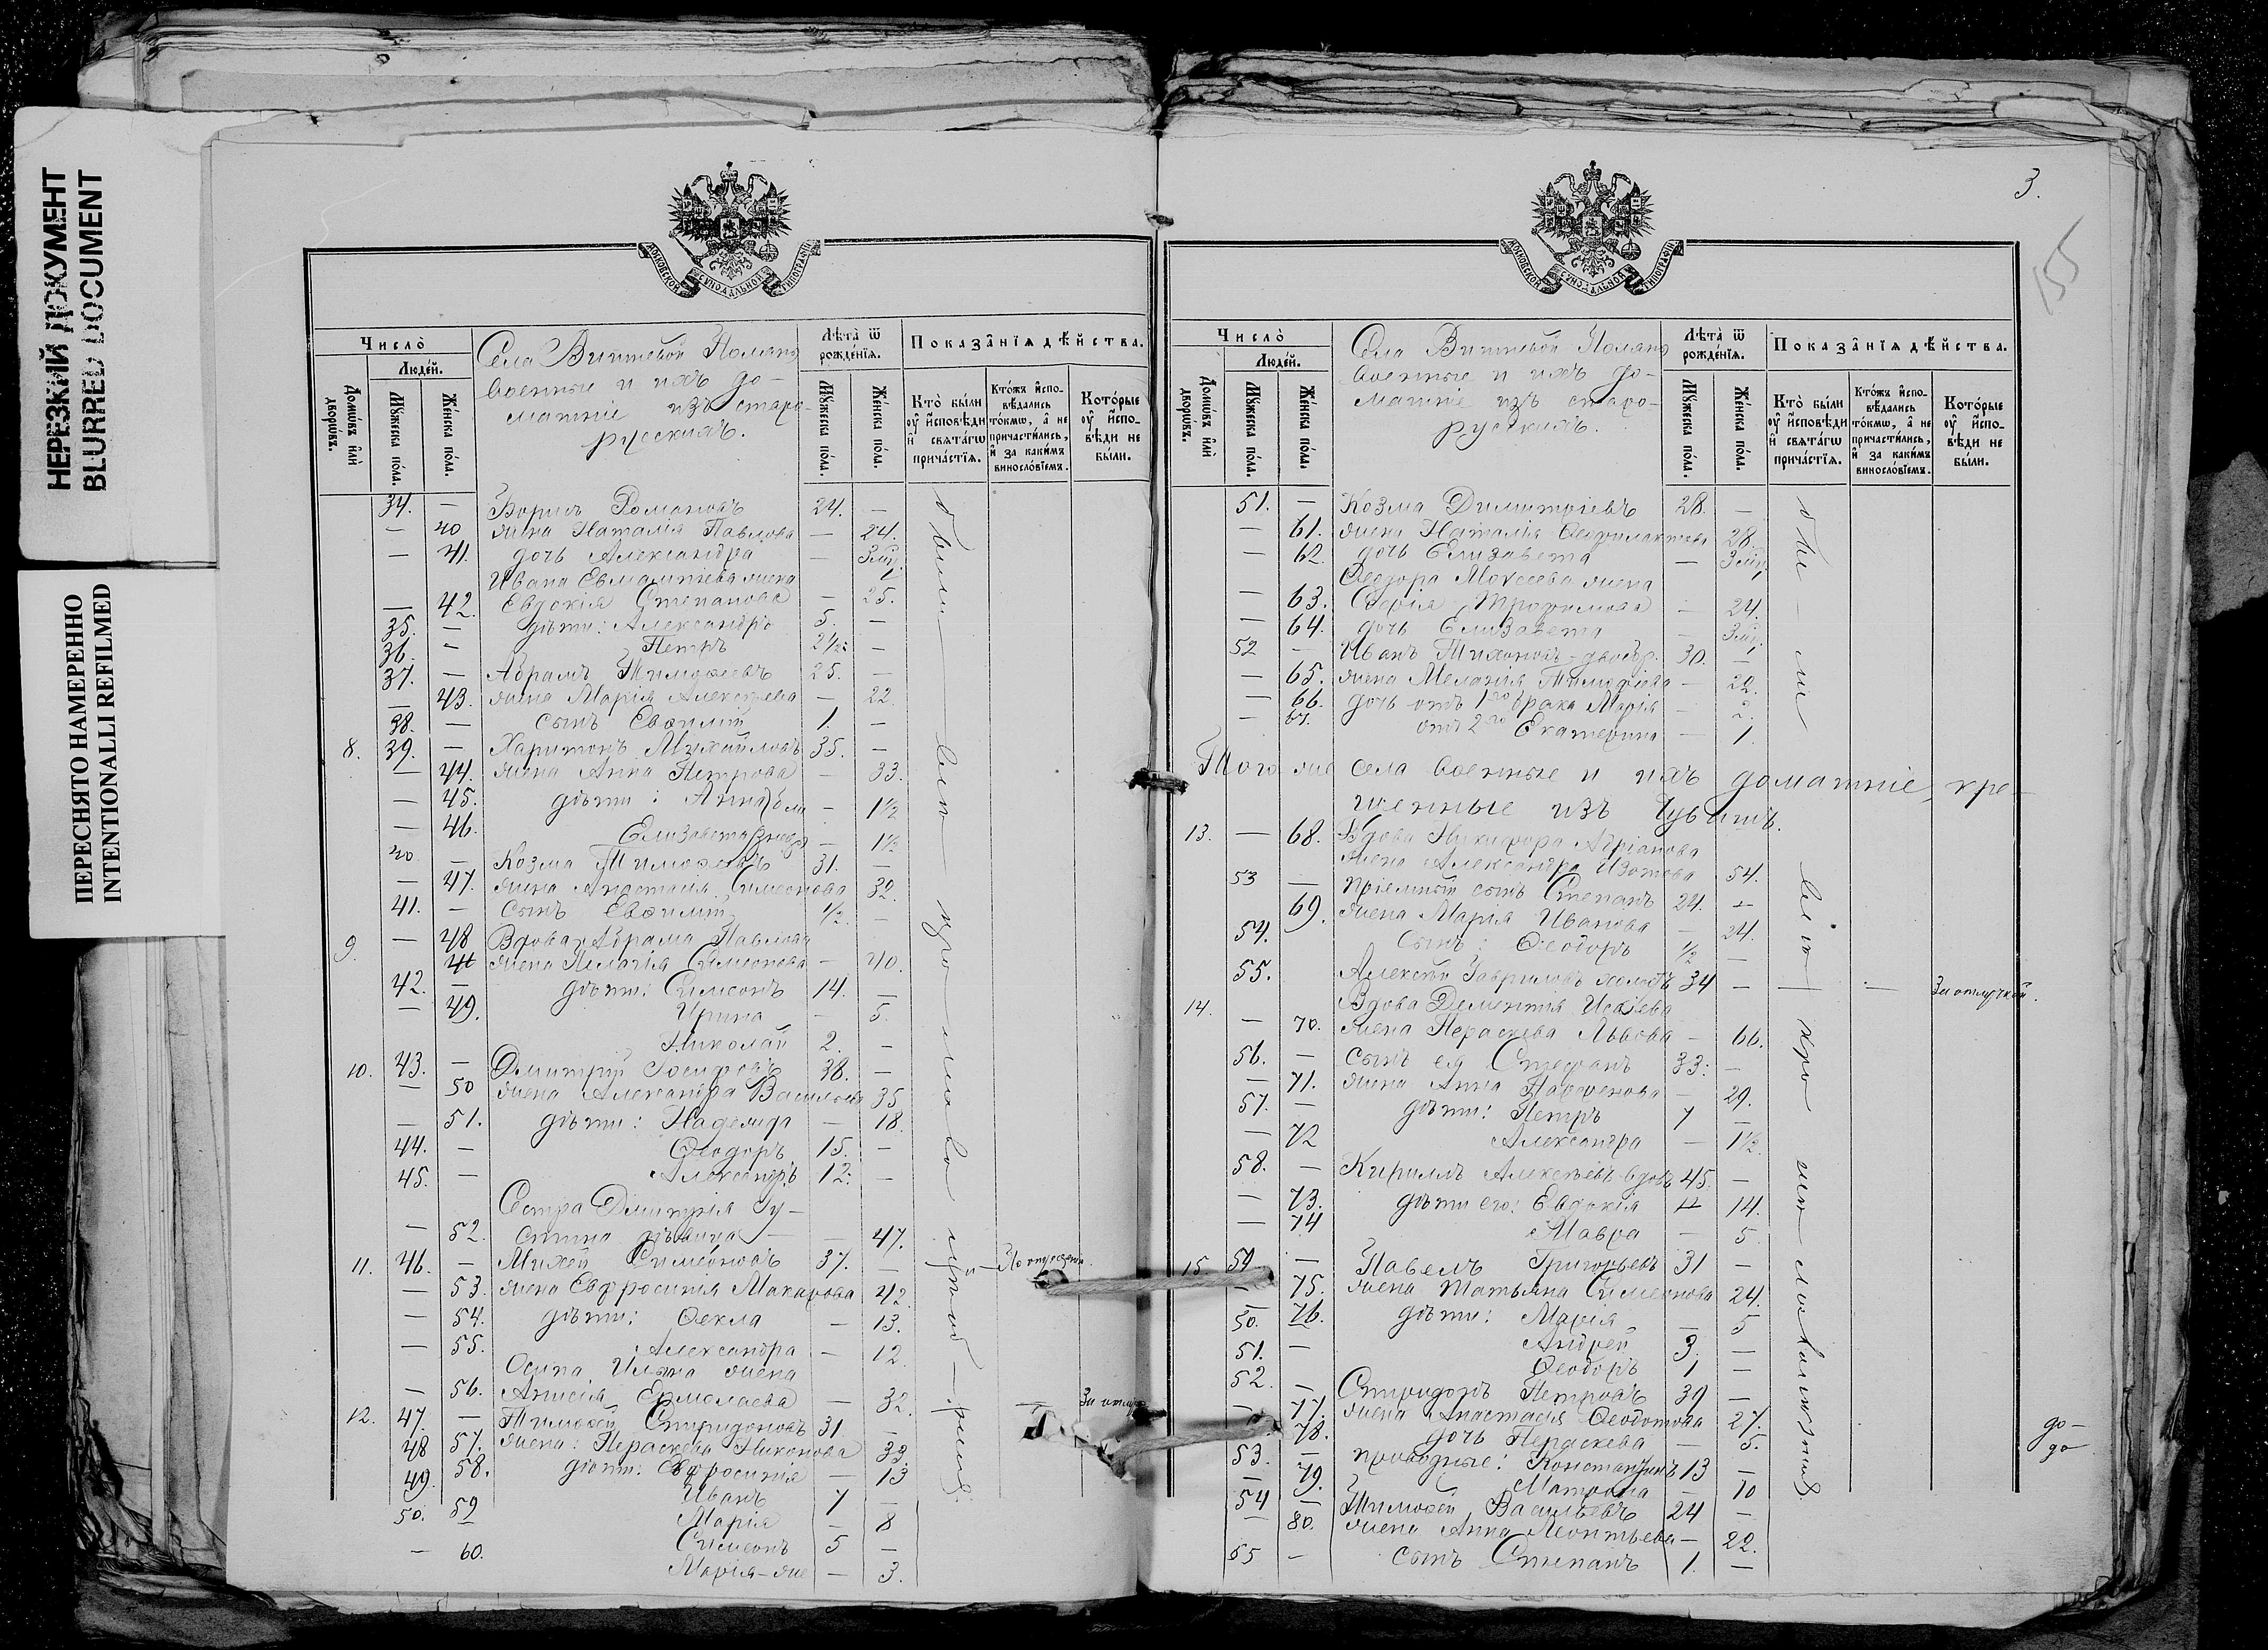 НЕРЕЗКИЙ ДОКУМЕНТ
BLURRED DOCUMENT
ПЕРЕСНЯТО НАМЕРЕННО
INTENTIONALLI REFILMED
МОСКОВСКОЙ СѴНОДАЛЬНОЙ ТИПОГРАФІИ
Число̀
Люде́й.
Домѡ́въ и҆лѝ дворѡ́въ.
Мꙋ́жеска по́ла.
Же́нска по́ла.
Села Вишневой Поляны
военные и ихъ до-
машніе изъ старо-
русскихъ.
Лѣта̀ ѿ рожде́нїѧ.
Мꙋ́жеска по́ла.
Же́нска по́ла.
Показа̑нїѧ дѣ́йства.
Кто̀ бы́ли оу҆ и҆сповѣди и҆ свѧта́гѡ прича́стїѧ.
Кто́жъ и҆спо-вѣдались то́кмѡ, а҆ не причасти́лись, и҆ за каки́мъ винослѡ́вїемъ.
Кото́рые оу҆ и҆спо-вѣди не бы́ли.
34. — Борисъ Романовъ 24. —
— 40 жена Наталія Павлова — 24.
— 41. дочь Александра — 3 мѣ.
Ивана Евлампіева жена
— 42. Евдокія Степанова — 25.
35. — дѣти: Александръ 5. —
36. — Петръ 2½. —
37. — Абрамъ Тимоѳеевъ 25. —
— 43. жена Марія Алексѣева — 22.
38. — сынъ Евѳимій 1. —
8. 39. — Харитонъ Михайловъ 35. —
— 44. жена Анна Петрова — 33.
— 45. дѣти: Анна — 1½
— 46. Елизавета — 1½
40 — Козма Тимоѳеевъ 31. —
— 47. жена Анастасія Симеонова 32.
41. — сынъ Евѳимій ½. —
9. — 48 Вдова Абрама Павлова
жена Пелагія Симеонова — 40.
42. — дѣти: Симеонъ 14. —
— 49. Ирина — 5.
Николай 2. —
10. 43. — Димитрій Іосифовъ 38. —
— 50 жена Александра Васильева 35
— 51. дѣти: Надежда — 18.
44. — Ѳеодоръ 15. —
45. — Александръ 12. —
Сестра Димитрія Іу-
— 52. стина дѣвица — — 47.
11. 46. — Михей Симеоновъ 37. —
— 53. жена Евфросинія Макарова 42.
— 54. дѣти: Ѳекла — 13.
— 55. Александра — 12.
Осипа Ильина жена
— 56. Анисія Ермолаева — 32. —
12. 47. — Тимоѳей Спиридоновъ 31. —
48 57. жена: Параскева Никонова 33.
49. 58. дѣти: Евфросинія — 13
Иванъ 7 —
50. 59 Марія — 8
Симеонъ 5 —
— 60. Марія-же — 3.
3.
155
МОСКОВСКОЙ СѴНОДАЛЬНОЙ ТИПОГРАФІИ
Число̀
Люде́й.
Домѡ́въ и҆лѝ дворѡ́въ.
Мꙋ́жеска по́ла.
Же́нска по́ла.
Села Вишневой Поляны
военные и ихъ до-
машніе изъ старо-
русскихъ.
Лѣта̀ ѿ рожде́нїѧ.
Мꙋ́жеска по́ла.
Же́нска по́ла.
Показа̑нїѧ дѣ́йства.
Кто̀ бы́ли оу҆ и҆сповѣди и҆ свѧта́гѡ прича́стїѧ.
Кто́жъ и҆спо-вѣдались то́кмѡ, а҆ не причасти́лись, и҆ за каки́мъ винослѡ́вїемъ.
Кото́рые оу҆ и҆спо-вѣди не бы́ли.
51. — Козма Димитріевъ 28. —
— 61. жена Наталія Ѳеофилактова 28.
— 62. дочь Елизавета — 3 мѣ.
Ѳеодора Моисеева жена
— 63. Софія Трофимова — 24.
— 64. дочь Елизавета — 3 мѣ.
52 — Иванъ Тихоновъ 30. —
— 65. жена Меланія Тимоѳеева — 22.
— 66. дочь отъ 1го брака Марія — 2.
— 67. отъ 2го Екатерина — 1.
Того же села военные и ихъ домашніе, кре-
щенные изъ Чувашъ.
13. — 68. Вдова Никифора Адріанова
жена Александра Изотова 54.
53 — пріемный сынъ Степанъ 24. —
69. жена Марія Иванова — 24.
54. сынъ: Ѳеодоръ ½ —
55. Алексѣй Гавриловъ холостъ 34 — — — За отлучкой.
14. Вдова Дементія Исаіева
— 70. жена Параскева Львова — 66.
56. — сынъ ея Стефанъ 33. —
— 71. жена Анна Парфенова — 29.
57. — дѣти: Петръ 7 —
— 72 Александра — 1½.
58. — Кириллъ Алексѣевъ вдовъ 45. —
— 73. дѣти его: Евдокія — 14.
— 74 Мавра — 5.
15 59 — Павелъ Григорьевъ 31 —
— 75. жена Татьяна Симеонова 24.
— 76. дѣти: Марія — 5
50. — Андрей 3. —
51. — Ѳеодоръ 1 —
52. — Спиридонъ Петровъ 39 —
— 77. жена Анастасія Ѳеодотова 27.
78. дочь Параскева — 5.
53. — приводные: Константинъ 13 —
— 79. Матрона — 10
54 — Тимоѳей Васильевъ 24 —
— 80. жена Анна Леонтьева — 22.
55 — сынъ Степанъ 1. —
до-
до